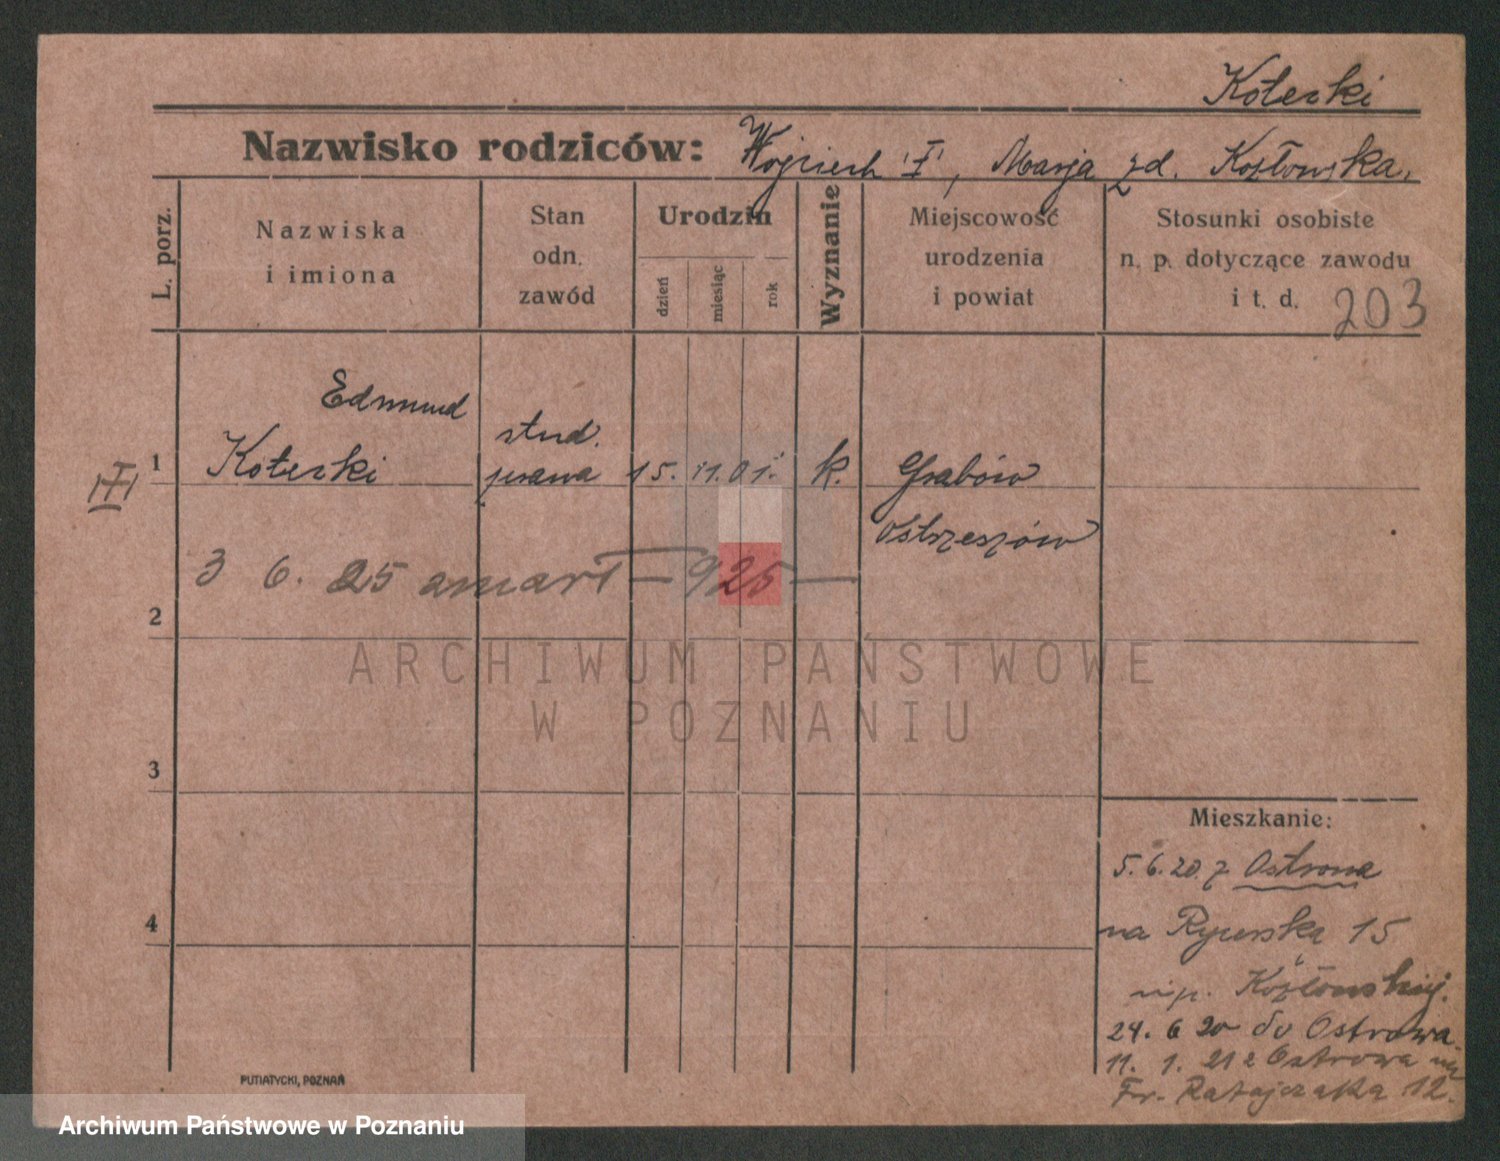 Koterki
Nazwisko rodziców: Wojciech '†', Marja zd. Kozłowska.
L. porz.
Nazwiska
i imiona
Stan
odn.
zawód
Urodzin
dzień
miesiąc
rok
Wyznanie
Miejscowość
urodzenia
i powiat
Stosunki osobiste
n. p. dotyczące zawodu
i t. d. 203
Edmund
1 Koterki
stud.
prawa
15. 11. 01.
k.
Grabów
Ostrzeszów
3 6. 25 zmarł — 925 —
2
3
4
Mieszkanie:
5. 6. 20 z Ostrowa
na 15
Kozłowskiej.
24. 6 20 do Ostrowa.
11. 1. 21 z Ostrowa na
Fr. Ratajczaka 12.
PUTIATYCKI, POZNAŃ
ARCHIWUM PAŃSTWOWE
W POZNANIU
Archiwum Państwowe w Poznaniu